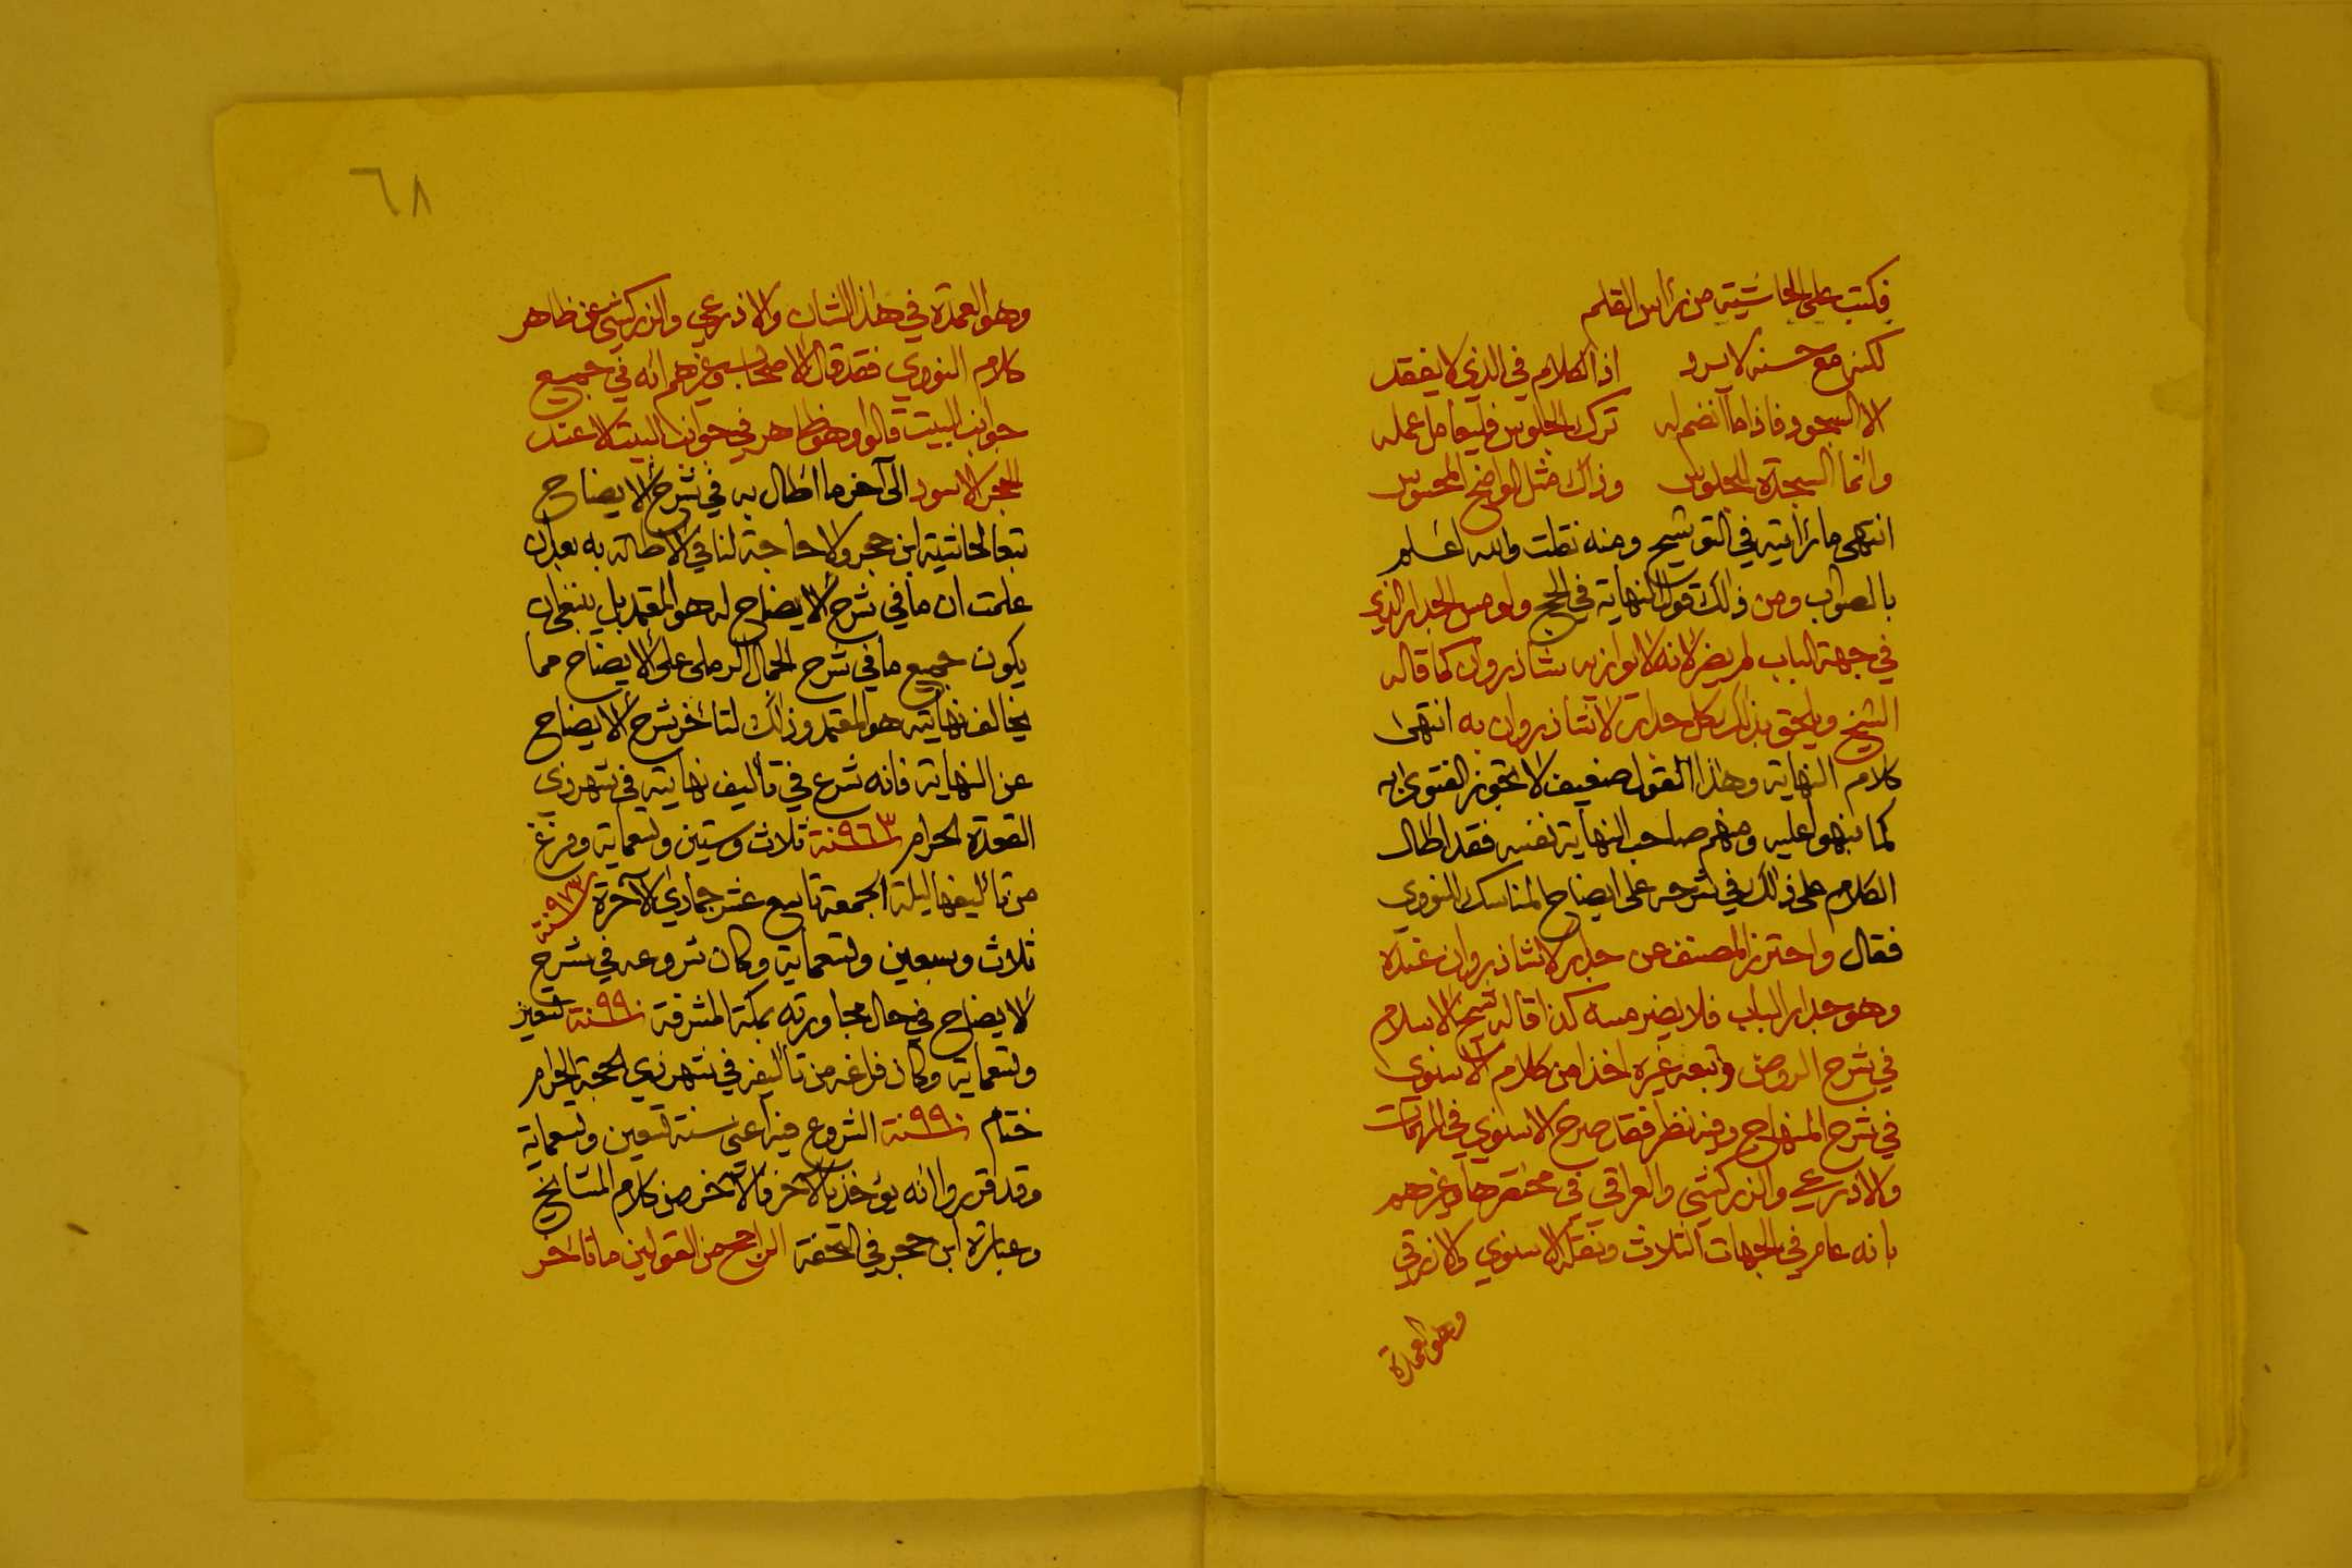 فكتب على الحاشية من رأس القلم
لكنه مع حسنه لا يرد اذ الكلام في الذي لا يفقد
الا السجود فاذا ما انضم له ترك الجلوس فليعامل عمله
وانما السجدة للجلوس وذاك مثل الواضح المحسوس
انتهى ما رأيته في التوشيح ومنه نقلت والله اعلم
بالصواب ومن ذلك قول النهاية في الحج ولو مس الجدار الذي
في جهة الباب لم يضر لانه لا يوازيه شاذروان كما قاله
الشيخ ويلحق بذلك كل جدار لا شاذروان به انتهى
كلام النهاية وهذا القول ضعيف لا تجوز الفتوى به
كما نبهوا عليه ومنهم صاحب النهاية نفسه فقد اطال
الكلام على ذلك في شرحه على ايضاح المناسك للنووي
فقال واحترز المصنف عن جدار لا شاذروان عنده
وهو جدار الباب فلا يضر مسه كذا قاله شيخ الاسلام
في شرح الروض وتبعه غيره اخذا من كلام الاسنوي
في شرح المنهاج وفيه نظر فقد صرح الاسنوي في المهمات
والاذرعي والزركشي والعراقي في مختصرها وغيرهم
بانه عام في الجهات الثلاث ونقله الاسنوي والازرقي
وهو العمدة
٦٨
وهو العمدة في هذا الشان والاذرعي والزركشي عن ظاهر
كلام النووي فقد قال الاصحاب وغيرهم انه في جميع
جوانب البيت قالوا وهو ظاهر في جوانب البيت لا عند
الحجر الاسود الى آخر ما اطال به في شرح الايضاح
تبعا لحاشية ابن حجر ولا حاجة لنا في الاطالة به بعد ان
علمت ان ما في شرح الايضاح له هو المعتمد بل ينبغي ان
يكون جميع ما في شرح الجمال الرملي على الايضاح مما
يخالف نهايته هو المعتمد وذلك لتأخر شرح الايضاح
عن النهاية فانه شرع في تأليف نهايته في شهر ذي
القعدة الحرام سنة ٩٦٣ ثلاث وستين وتسعماية وفرغ
من تأليفها ليلة الجمعة تاسع عشر جمادى الآخرة سنة ٩٧٣
ثلاث وسبعين وتسعماية وكان شروعه في شرح
الايضاح في حال مجاورته بمكة المشرفة سنة ٩٩٠ تسعين
وتسعماية وكان فراغه من تأليفه في شهر ذي الحجة الحرام
ختام سنة ٩٩٠ الشروع فيه اعني سنة تسعين وتسعماية
وقد قرروا انه يؤخذ بالآخر فالآخر من كلام المشايخ
وعبارة ابن حجر في التحفة الراجح من القولين ما تأخر